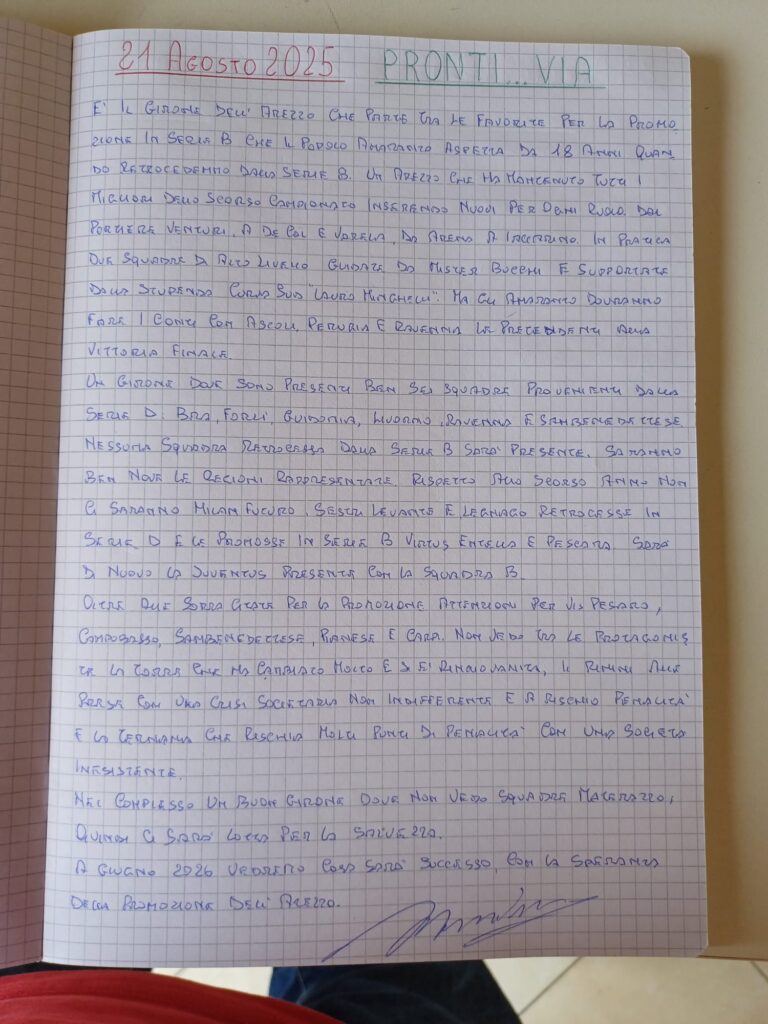 21 AGOSTO 2025 PRONTI... VIA
E' IL GIRONE DELL' AREZZO CHE PARTE TRA LE FAVORITE PER LA PROMO
ZIONE IN SERIE B CHE IL POPOLO AMARANTO ASPETTA DA 18 ANNI QUAN
DO RETROCEDEMMO DALLA SERIE B. UN AREZZO CHE HA MANTENUTO TUTTI I
MIGLIORI DELLO SCORSO CAMPIONATO INSERENDO NUOVI PER OGNI RUOLO. DAL
PORTIERE VENTURI, A DE COL E VARELA, DA ARENA A IACCARINO. IN PRATICA
DUE SQUADRE DI ALTO LIVELLO GUIDATE DA MISTER BUCCHI E SUPPORTATE
DALLA STUPENDA CURVA SUD "LAURO MINGHELLI". MA GLI AMARANTO DOVRANNO
FARE I CONTI CON ASCOLI, PERUGIA E RAVENNA LE PRETENDENTI ALLA
VITTORIA FINALE.
UN GIRONE DOVE SONO PRESENTI BEN SEI SQUADRE PROVENIENTI DALLA
SERIE D: BRA, FORLÌ, GUIDONIA, LIVORNO, RAVENNA E SAMBENEDETTESE.
NESSUNA SQUADRA RETROCESSA DALLA SERIE B SARÀ PRESENTE. SARANNO
BEN NOVE LE REGIONI RAPPRESENTATE. RISPETTO ALLO SCORSO ANNO NON
CI SARANNO MILAN FUTURO, SESTRI LEVANTE E LEGNAGO RETROCESSE IN
SERIE D E LE PROMOSSE IN SERIE B VIRTUS ENTELLA E PESCARA. SARÀ
DI NUOVO LA JUVENTUS PRESENTE CON LA SQUADRA B.
OLTRE ALLE SOPRA CITATE PER LA PROMOZIONE ATTENZIONI PER VIS PESARO,
CAMPOBASSO, SAMBENEDETTESE, PIANESE E CARPI. NON VEDO TRA LE PROTAGONIS
TE LA TORRES CHE HA CAMBIATO MOLTO E SI E' RINGIOVANITA, IL RIMINI ALLE
PRESE CON UNA CRISI SOCIETARIA NON INDIFFERENTE E A RISCHIO PENALITA'
E LA TERNANA CHE RISCHIA MOLTI PUNTI DI PENALITA' CON UNA SOCIETÀ
INESISTENTE.
NEL COMPLESSO UN BUON GIRONE DOVE NON VEDO SQUADRE MATERASSO,
QUINDI CI SARÀ LOTTA PER LA SALVEZZA.
A GIUGNO 2026 VEDREMO COSA SARÀ SUCCESSO, CON LA SPERANZA
DELLA PROMOZIONE DELL' AREZZO.